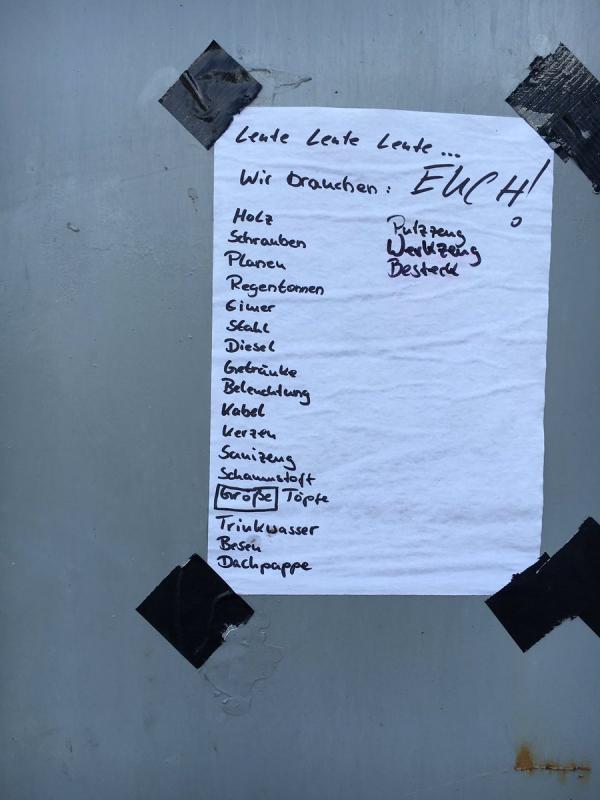 Leute Leute Leute...
Wir brauchen: EUCH!
Holz
Schrauben
Planen
Regentonnen
Eimer
Stahl
Diesel
Getränke
Beleuchtung
Kabel
Kerzen
Sanizeug
Schaumstoff
Große Töpfe
Trinkwasser
Besen
Dachpappe
Putzzeug
Werkzeug
Besteck